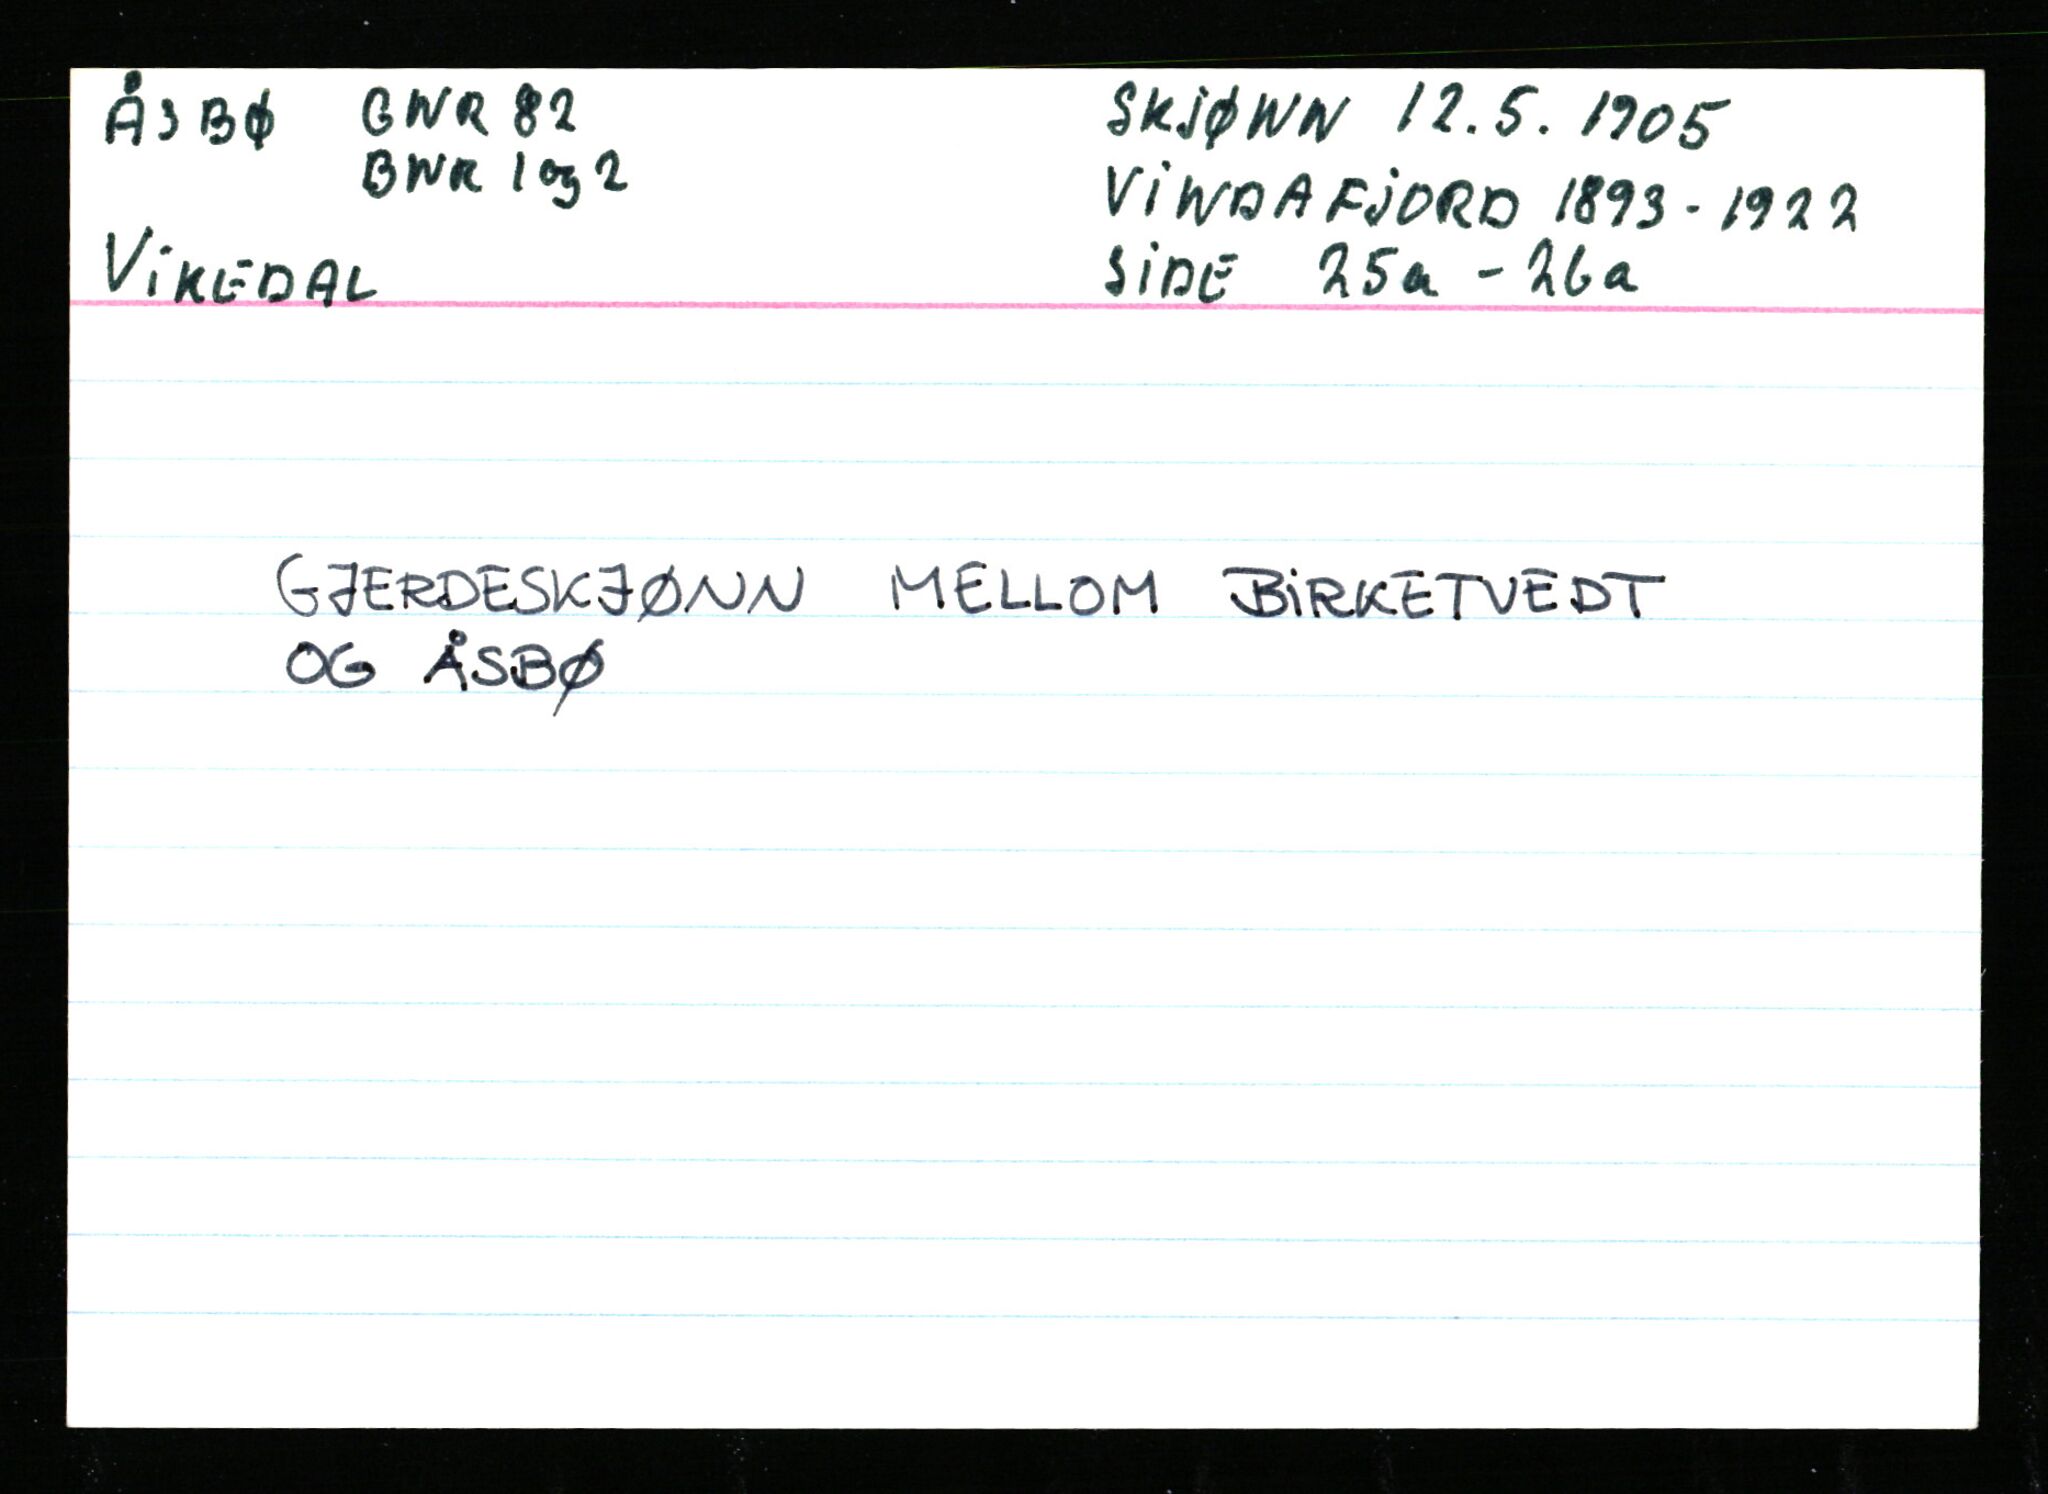 ÅSBØ GNR 82
BNR 1 og 2
VIKEDAL
SKJØNN 12.5.1905
VINDAFJORD 1893-1922
SIDE 25a - 26a
GJERDESKJØNN MELLOM BIRKETVEDT
OG ÅSBØ